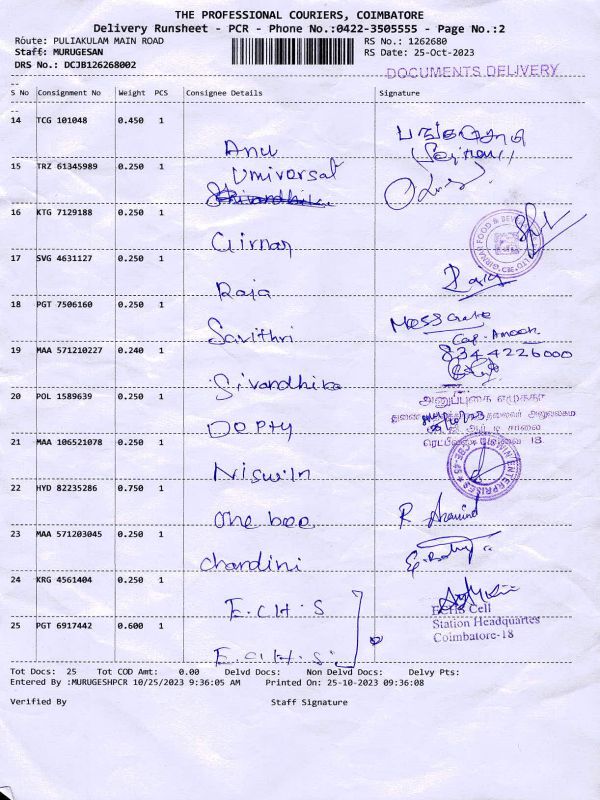 THE PROFESSIONAL COURIERS, COIMBATORE
Delivery Runsheet - PCR - Phone No.:0422-3505555 - Page No.:2
Route: PULIAKULAM MAIN ROAD RS No.: 1262680
Staff: MURUGESAN RS Date: 25-Oct-2023
DRS No.: DCJB126268002
DOCUMENTS DELIVERY
S No Consignment No Weight PCS Consignee Details Signature
14 TCG 101048 0.450 1 Anu
15 TRZ 61345989 0.250 1 Universal
16 KTG 7129188 0.250 1 Girnar
17 SVG 4631127 0.250 1 Raja
18 PGT 7506160 0.250 1 Savithri
19 MAA 571210227 0.240 1 Sivandhika 8344226000
20 POL 1589639 0.250 1 Depty அனுப்புகை எழுத்தர்
21 MAA 106521078 0.250 1 Niswin
22 HYD 82235286 0.750 1 One bee R. Anand
23 MAA 571203045 0.250 1 chandini
24 KRG 4561404 0.250 1 E.C.H.S
ECHS Cell
Station Headquartes
Coimbatore-18
25 PGT 6917442 0.600 1 E.C.H.S
Tot Docs: 25 Tot COD Amt: 0.00 Delvd Docs: Non Delvd Docs: Delvy Pts:
Entered By :MURUGESHPCR 10/25/2023 9:36:05 AM Printed On: 25-10-2023 09:36:08
Verified By Staff Signature